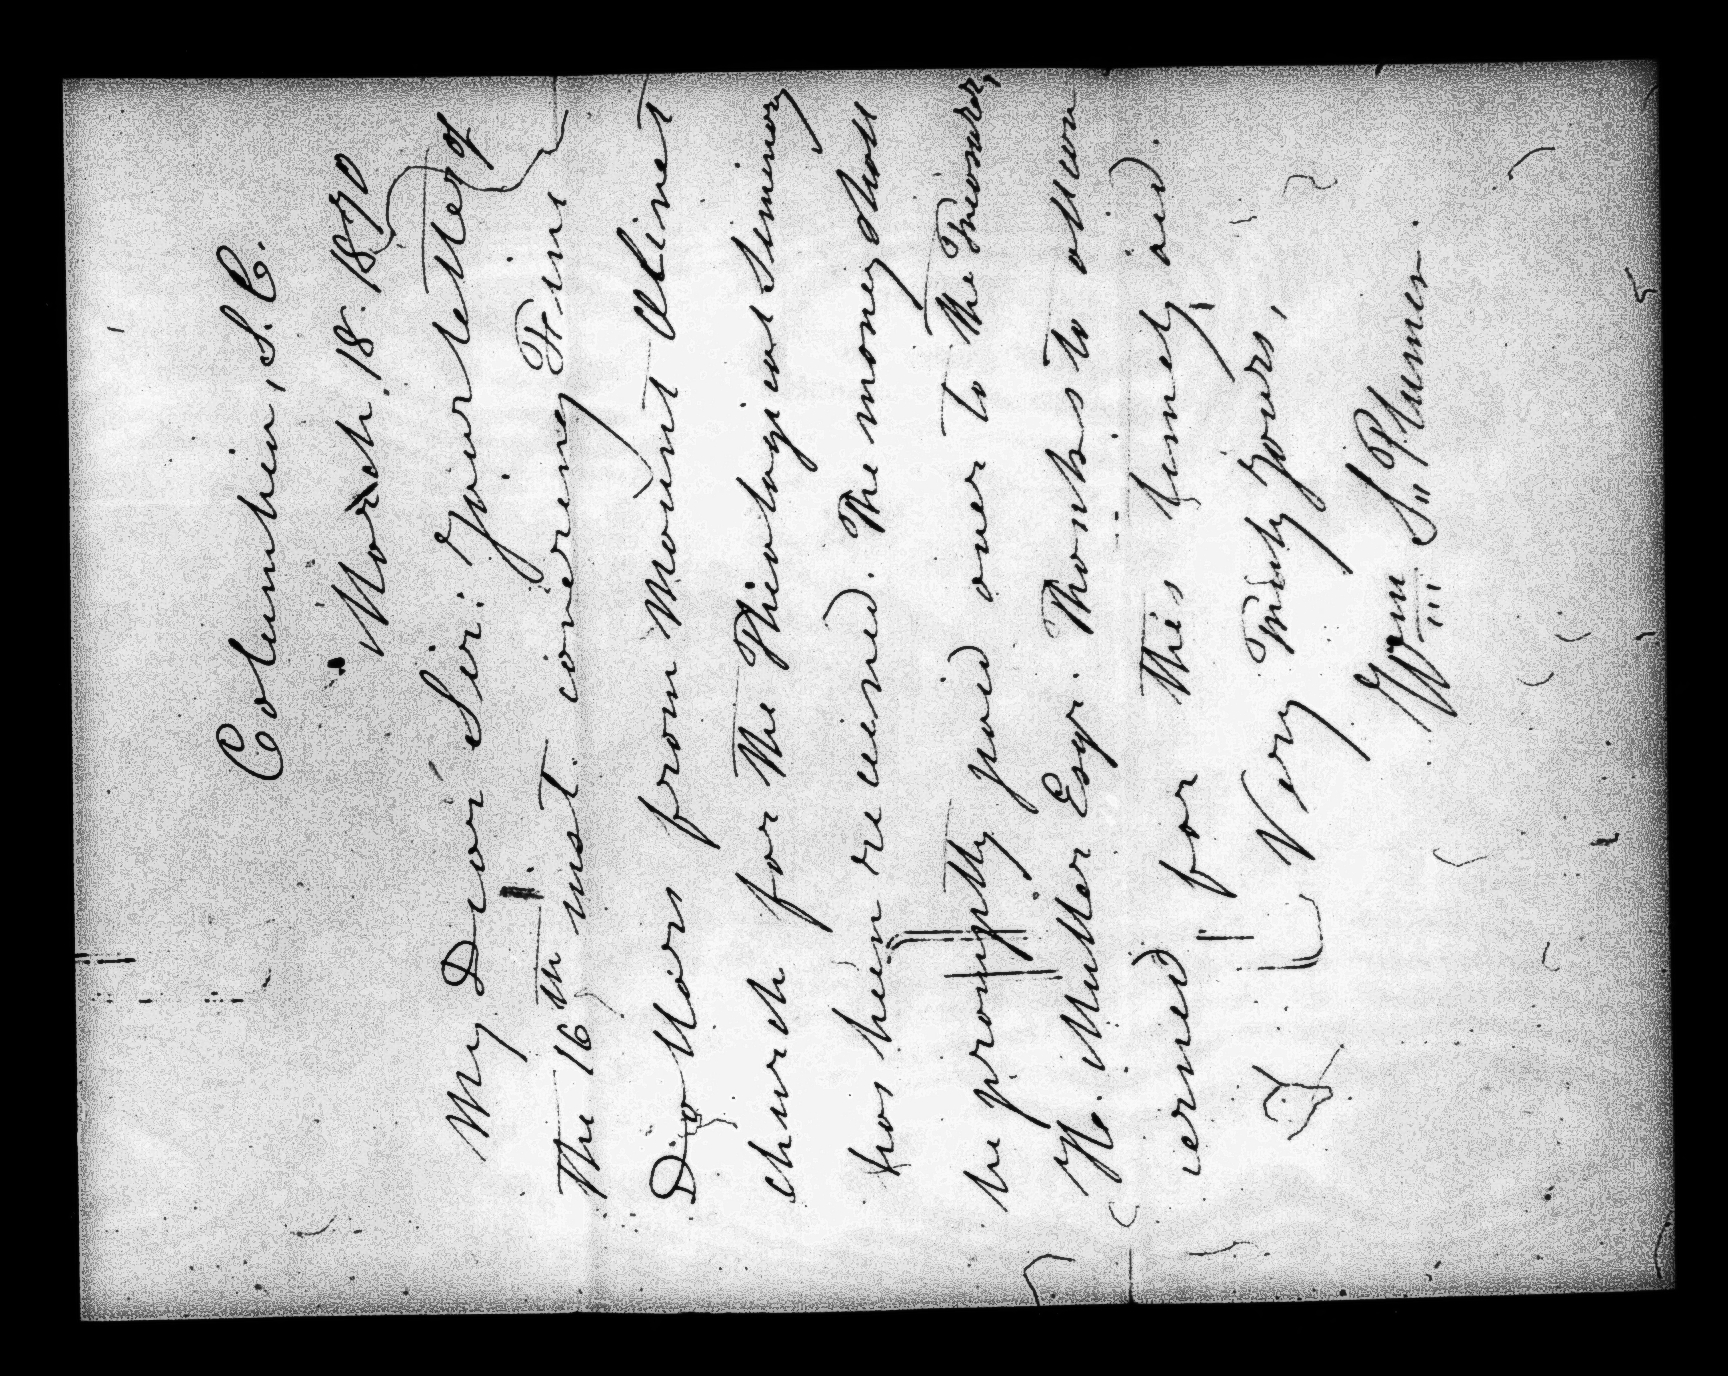 Columbia, S. C.
March, 18. 1870
My Dear Sir: Your letter of
the 16th inst. covering Five
Dollars from Mount Olivet
church for the Theological Seminary
has been received. The money shall
be promptly paid over to the Treasurer,
H. Muller Esqr. Thanks to all con
cerned for this timely aid.
Very Truly Yours,
Wm S. Plumer.